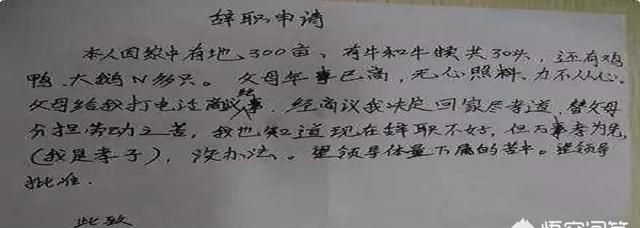 辞职申请
本人因家中有地300亩、有牛和牛犊共30头,还有鸡
鸭、大鹅N多只。父母年事已高,无心照料、力不从心、
父母给我打电话商议结事,经商议我决定回家尽孝道、替父母
分担劳动之苦,我也知道现在辞职不好,但万事孝为先,
(我是孝子),没办法。望领导体量下属的苦中。望领导
批准.
此致
悟空问答